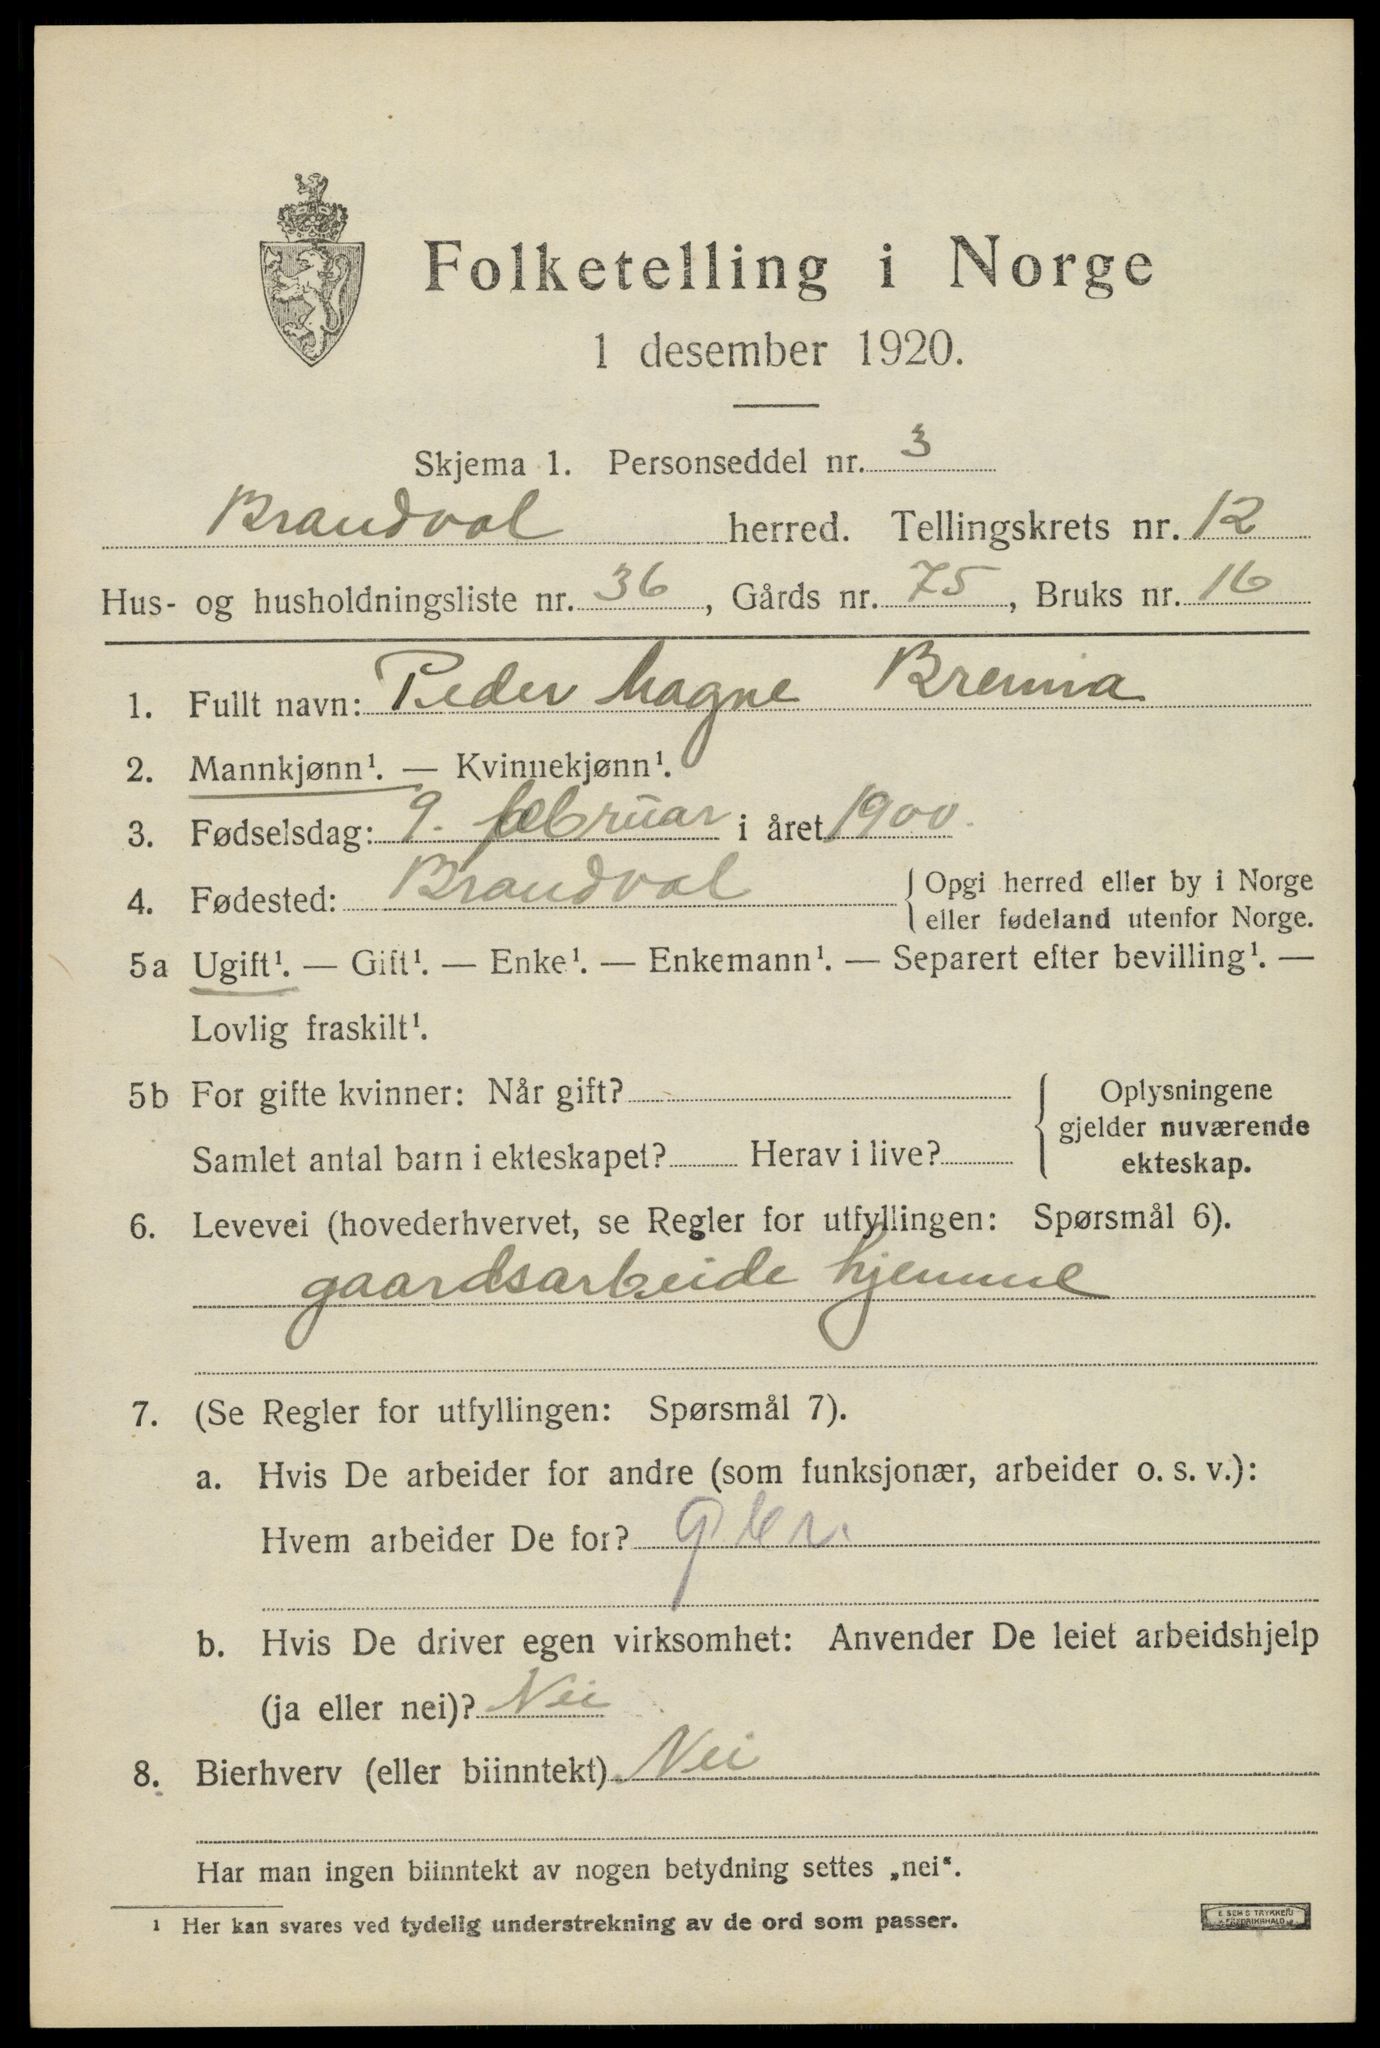 Folketelling i Norge
1 desember 1920.
Skjema 1. Personseddel nr. 3
Brandval herred. Tellingskrets nr. 12
Hus- og husholdningsliste nr. 36, Gårds nr. 75, Bruks nr. 16
1. Fullt navn: Peder Magne Brenna
2. Mannkjønn¹. — Kvinnekjønn¹.
3. Fødselsdag: 9. februar i året 1900.
4. Fødested: Brandval { Opgi herred eller by i Norge
eller fødeland utenfor Norge.
5a Ugift¹. — Gift¹. — Enke¹. — Enkemann¹. — Separert efter bevilling¹. —
Lovlig fraskilt¹.
5b For gifte kvinner: Når gift? { Oplysningene
gjelder nuværende
Samlet antal barn i ekteskapet? Herav i live? ekteskap.
6. Levevei (hovederhvervet, se Regler for utfyllingen: Spørsmål 6).
gaardsarbeide hjemme
7. (Se Regler for utfyllingen: Spørsmål 7).
a. Hvis De arbeider for andre (som funksjonær, arbeider o. s. v.):
Hvem arbeider De for?
b. Hvis De driver egen virksomhet: Anvender De leiet arbeidshjelp
(ja eller nei)? Nei
8. Bierhverv (eller biinntekt) Nei
Har man ingen biinntekt av nogen betydning settes „nei“.
¹ Her kan svares ved tydelig understrekning av de ord som passer.
E. SEM'S TRYKKERI
FREDRIKSHALD